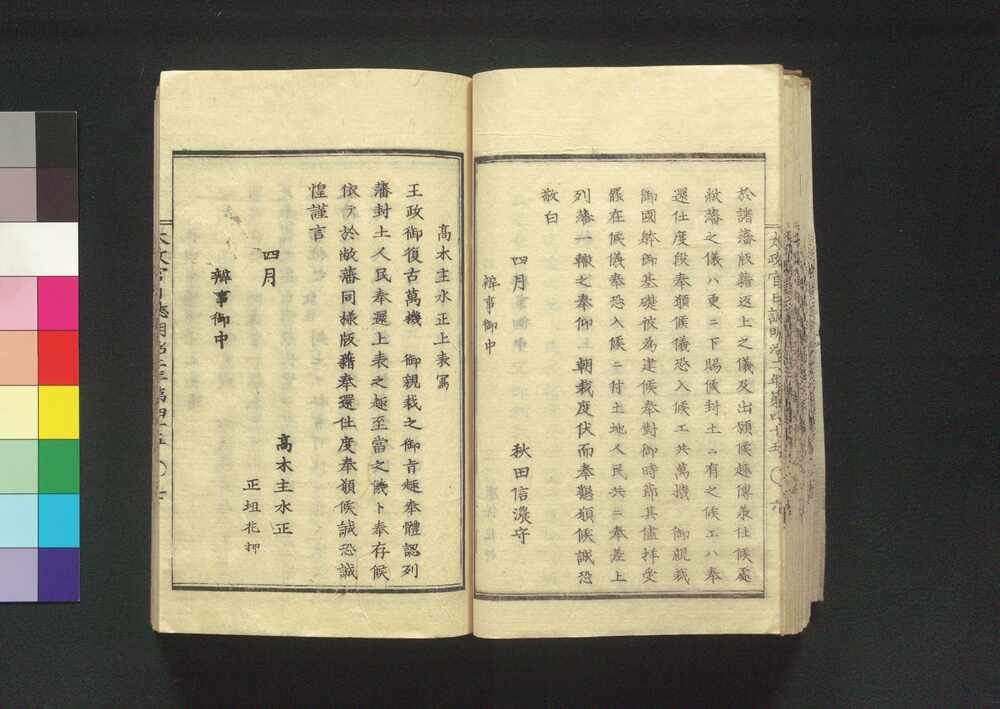 於諸藩版籍返上之儀及出願候趣傳承仕候處
敝藩之儀ハ更ニ下賜候封土ニ有之候エハ奉
還仕度段奉願候儀恐入候エ共萬機 御親裁
御國躰御基礎被為建候奉對御時節其儘拝受
罷在候儀奉恐入候ニ付土地人民共ニ奉差上
列藩一轍之奉仰 朝裁度伏而奉懇願候誠恐
敬白
四月 秋田信濃守
辨事御中
太政官日誌明治二年第四十五 〇 六
高木主水正上表寫
王政御復古萬機 御親裁之御旨趣奉體認列
藩封土人民奉還上表之趣至當之儀ト奉存候
依テ於敝藩同様版籍奉還仕度奉願候誠恐誠
惶謹言
四月
高木主水正
正坦花押
辨事御中